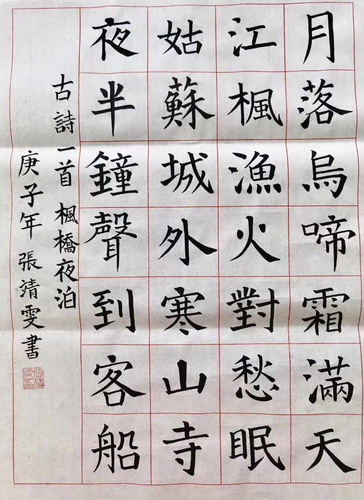 月落烏啼霜滿天
江楓漁火對愁眠
姑蘇城外寒山寺
夜半鐘聲到客船
古詩一首 楓橋夜泊
庚子年 張靖雯書